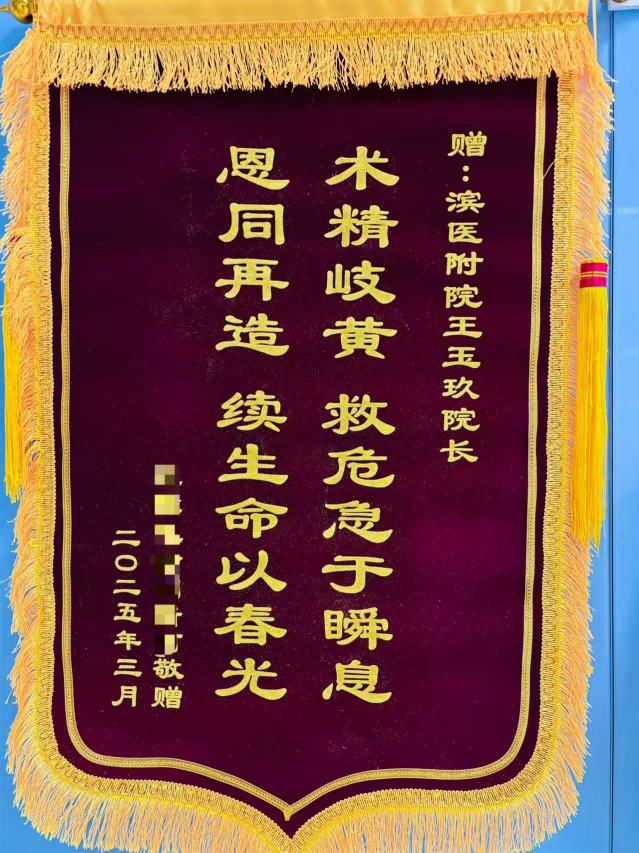 赠：滨医附院王玉玖院长
术精岐黄 救危急于瞬息
恩同再造 续生命以春光
敬赠
二〇二五年三月